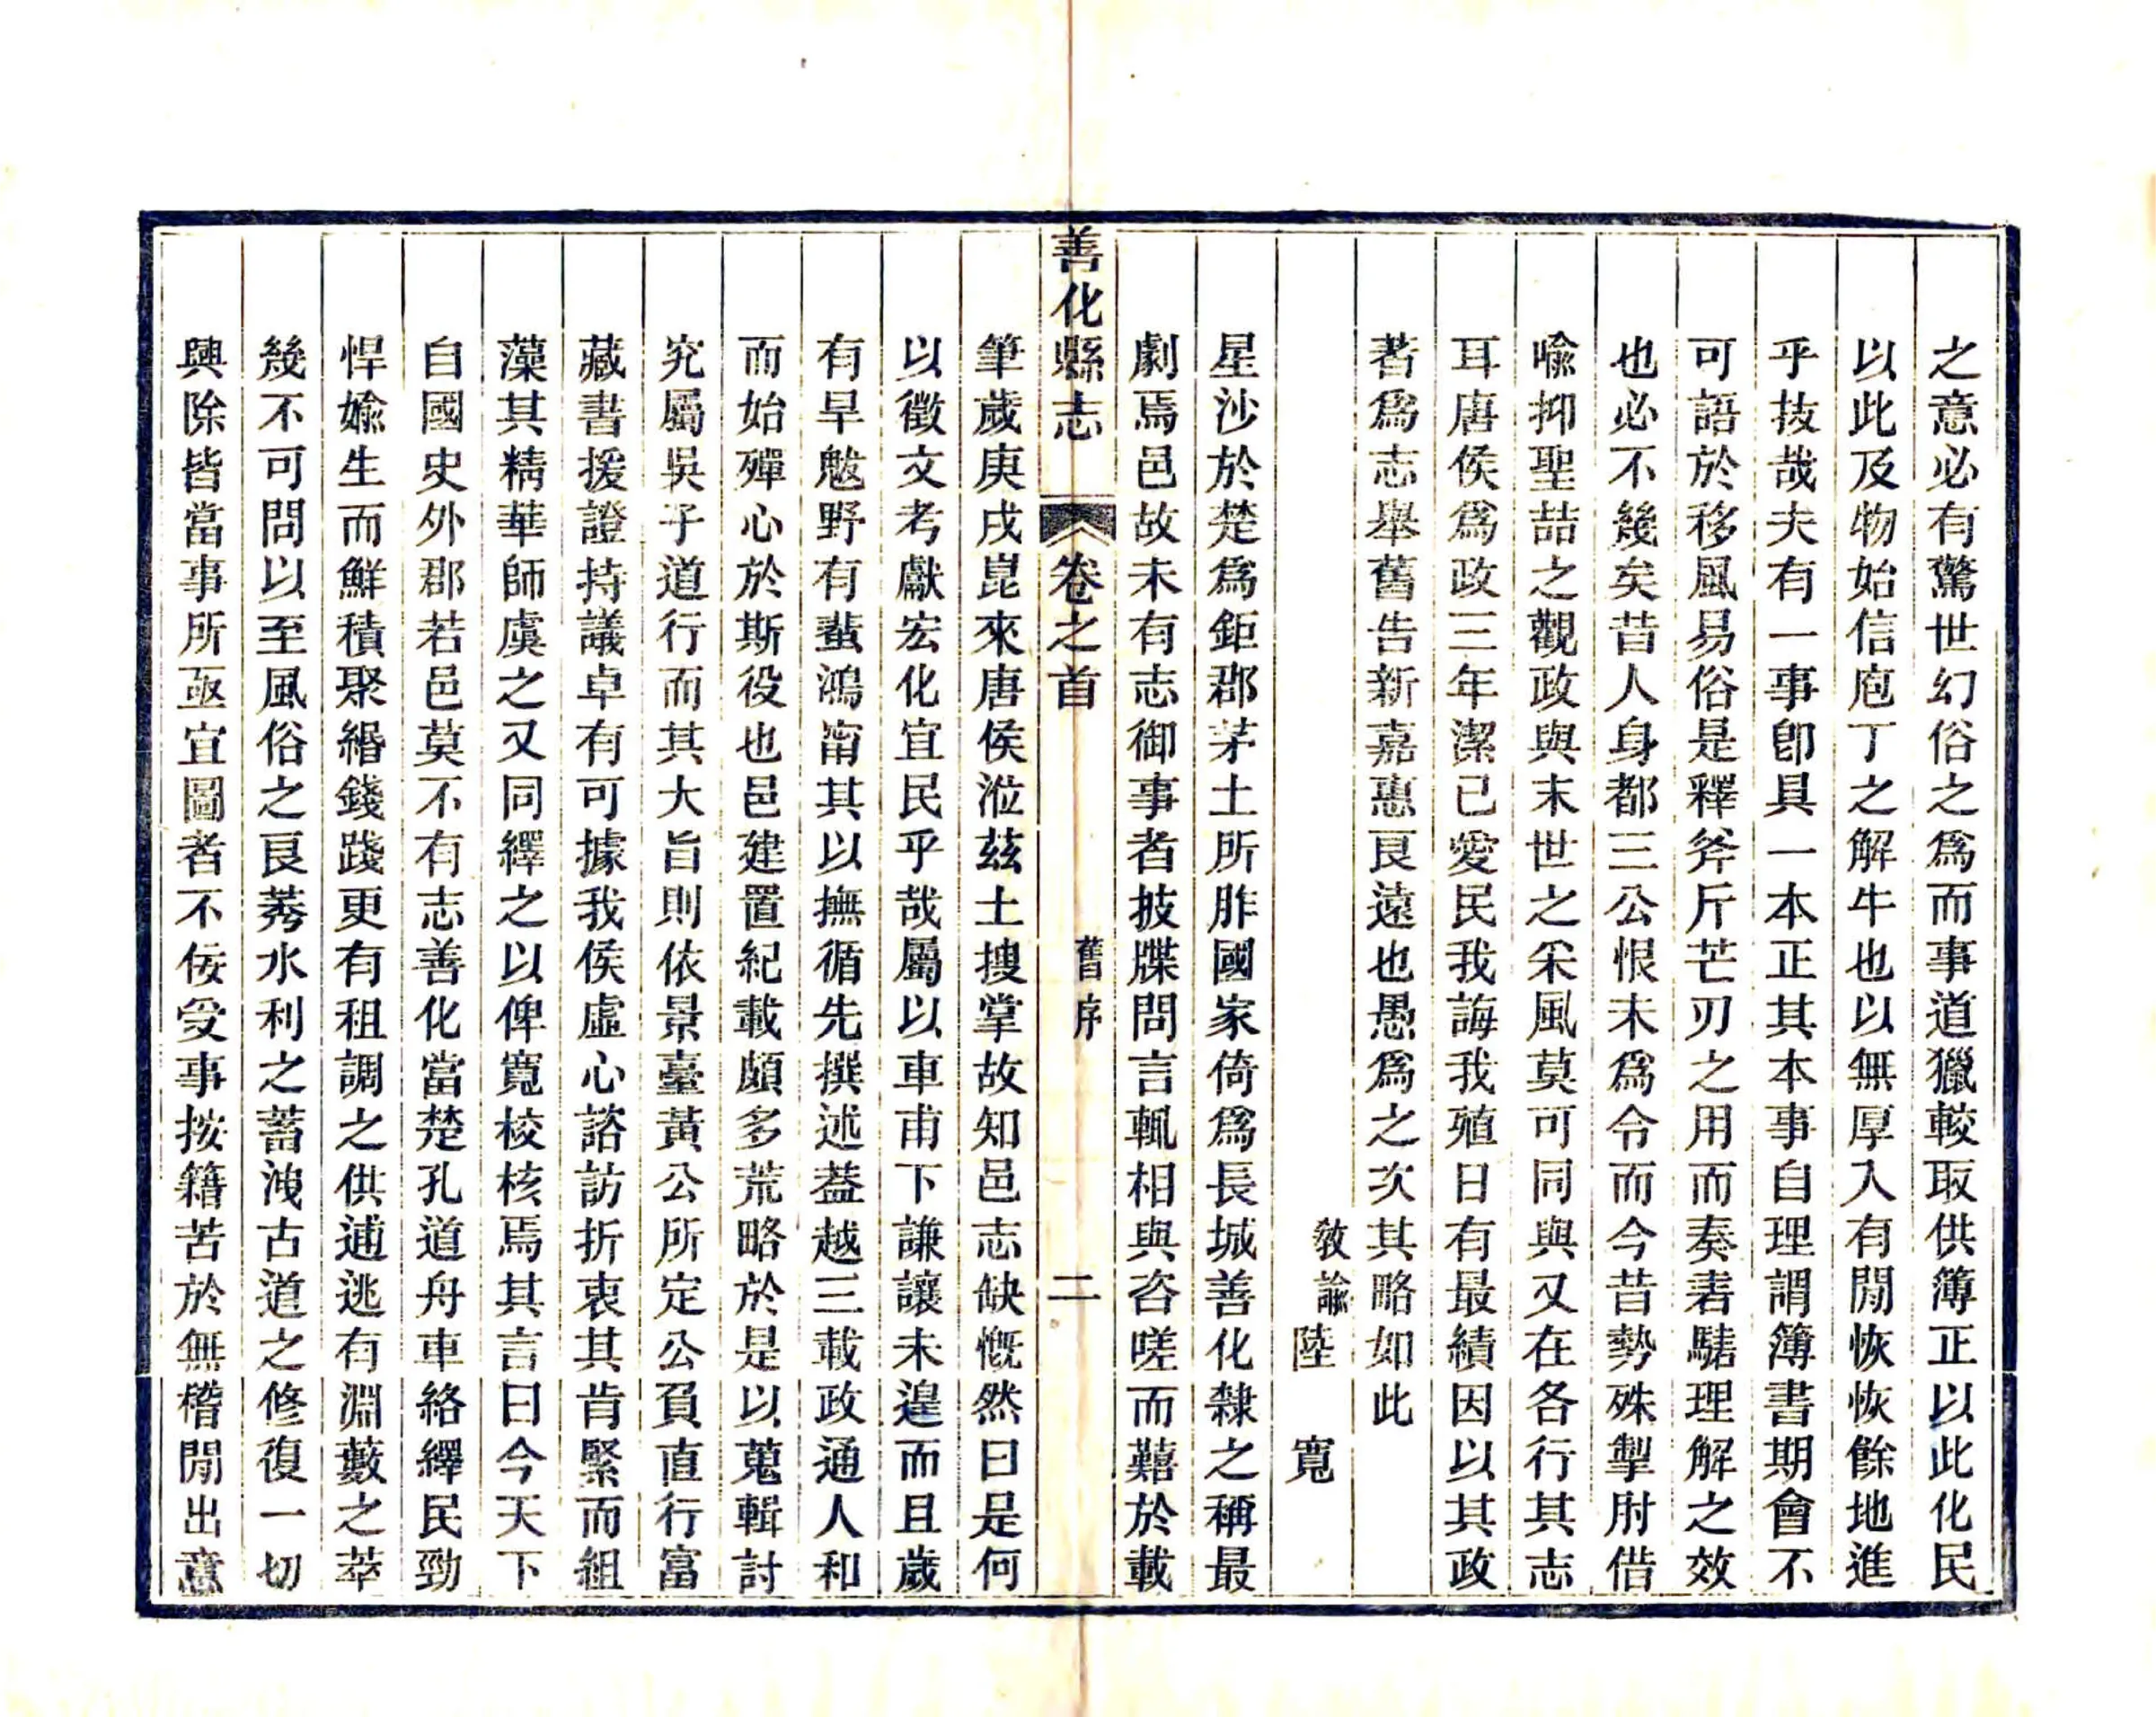 之意必有驚世幻俗之爲而事道獵較取供簿正以此化民
以此及物始信庖丁之解牛也以無厚入有閒恢恢餘地進
乎技哉夫有一事卽具一本正其本事自理謂簿書期會不
可語於移風易俗是釋斧斤芒刃之用而奏砉騞理解之效
也必不幾矣昔人身都三公恨未爲令而今昔勢殊掣肘借
喩抑聖喆之觀政與末世之采風莫可同與又在各行其志
耳唐侯爲政三年潔已愛民我誨我殖日有最績因以其政
者爲志舉舊告新嘉惠良遠也愚爲之次其略如此
敎諭陸　寬
星沙於楚爲鉅郡茅土所胙國家倚爲長城善化隸之稱最
劇焉邑故未有志御事者披牒問言輒相與咨嗟而囏於載
善化縣志　卷之首　舊序　二
筆歲庚戌崑來唐侯涖茲土搜掌故知邑志缺慨然曰是何
以徵文考獻宏化宜民乎哉屬以車甫下謙讓未遑而且歲
有旱魃野有蜚鴻甯其以撫循先撰述葢越三載政通人和
而始殫心於斯役也邑建置紀載頗多荒略於是以蒐輯討
究屬吳子道行而其大旨則依景臺黃公所定公負直行富
藏書援證持議卓有可據我侯虛心諮訪折衷其肯綮而組
藻其精華師虞之又同繹之以俾寬校核焉其言曰今天下
自國史外郡若邑莫不有志善化當楚孔道舟車絡繹民勁
悍媮生而鮮積聚緡錢踐更有租調之供逋逃有淵藪之萃
幾不可問以至風俗之良莠水利之蓄洩古道之修復一切
興除皆當事所亟宜圖者不佞受事按籍苦於無稽閒出意